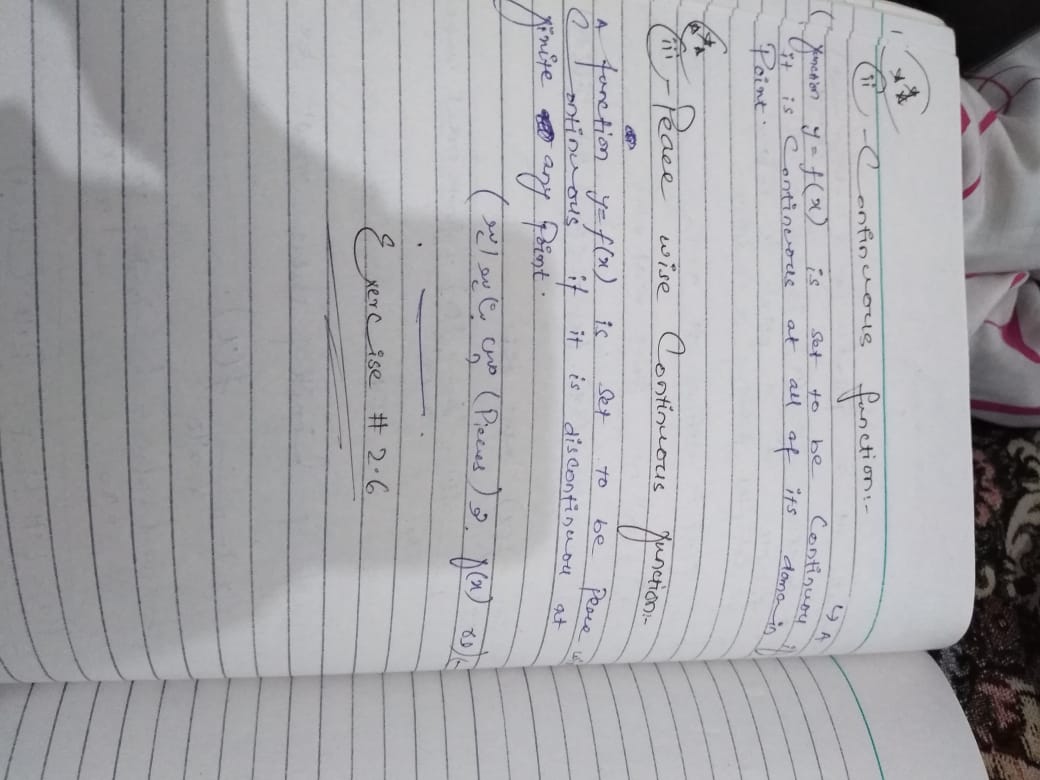 (ii) - Continuous function:-
↳ A
function y=f(x) is set to be Continuou
it is Continuous at all of its domain
Point.
(iii) - Peace wise Continuous function:-
A function y=f(x) is set to be Peace
Continuous if it is discontinuou at
finite any Point.
(Pieces) f(x)
Exercise # 2.6